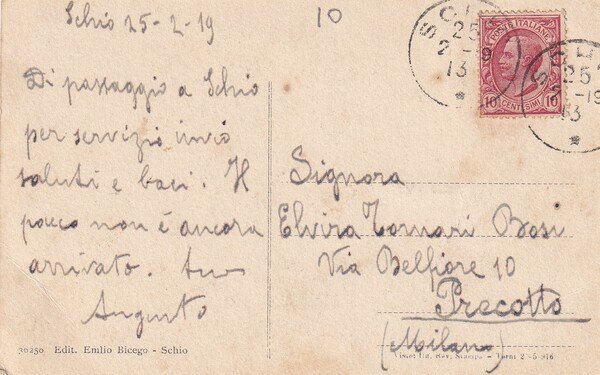 Schio 25-2-19
10
Di passaggio a Schio
per servizio invio
saluti e baci. Il
pacco non è ancora
arrivato. tuo
Augusto
POSTE ITALIANE
10 CENTESIMI 10
SCHIO
25
2-19
13
SCHIO
25
2-19
13
Signora
Elvira Tornari Bosi
Via Belfiore 10
Precotto
(Milano)
36250 Edit. Emilio Bicego - Schio
Rev. Stampa - Terni 2-5-916